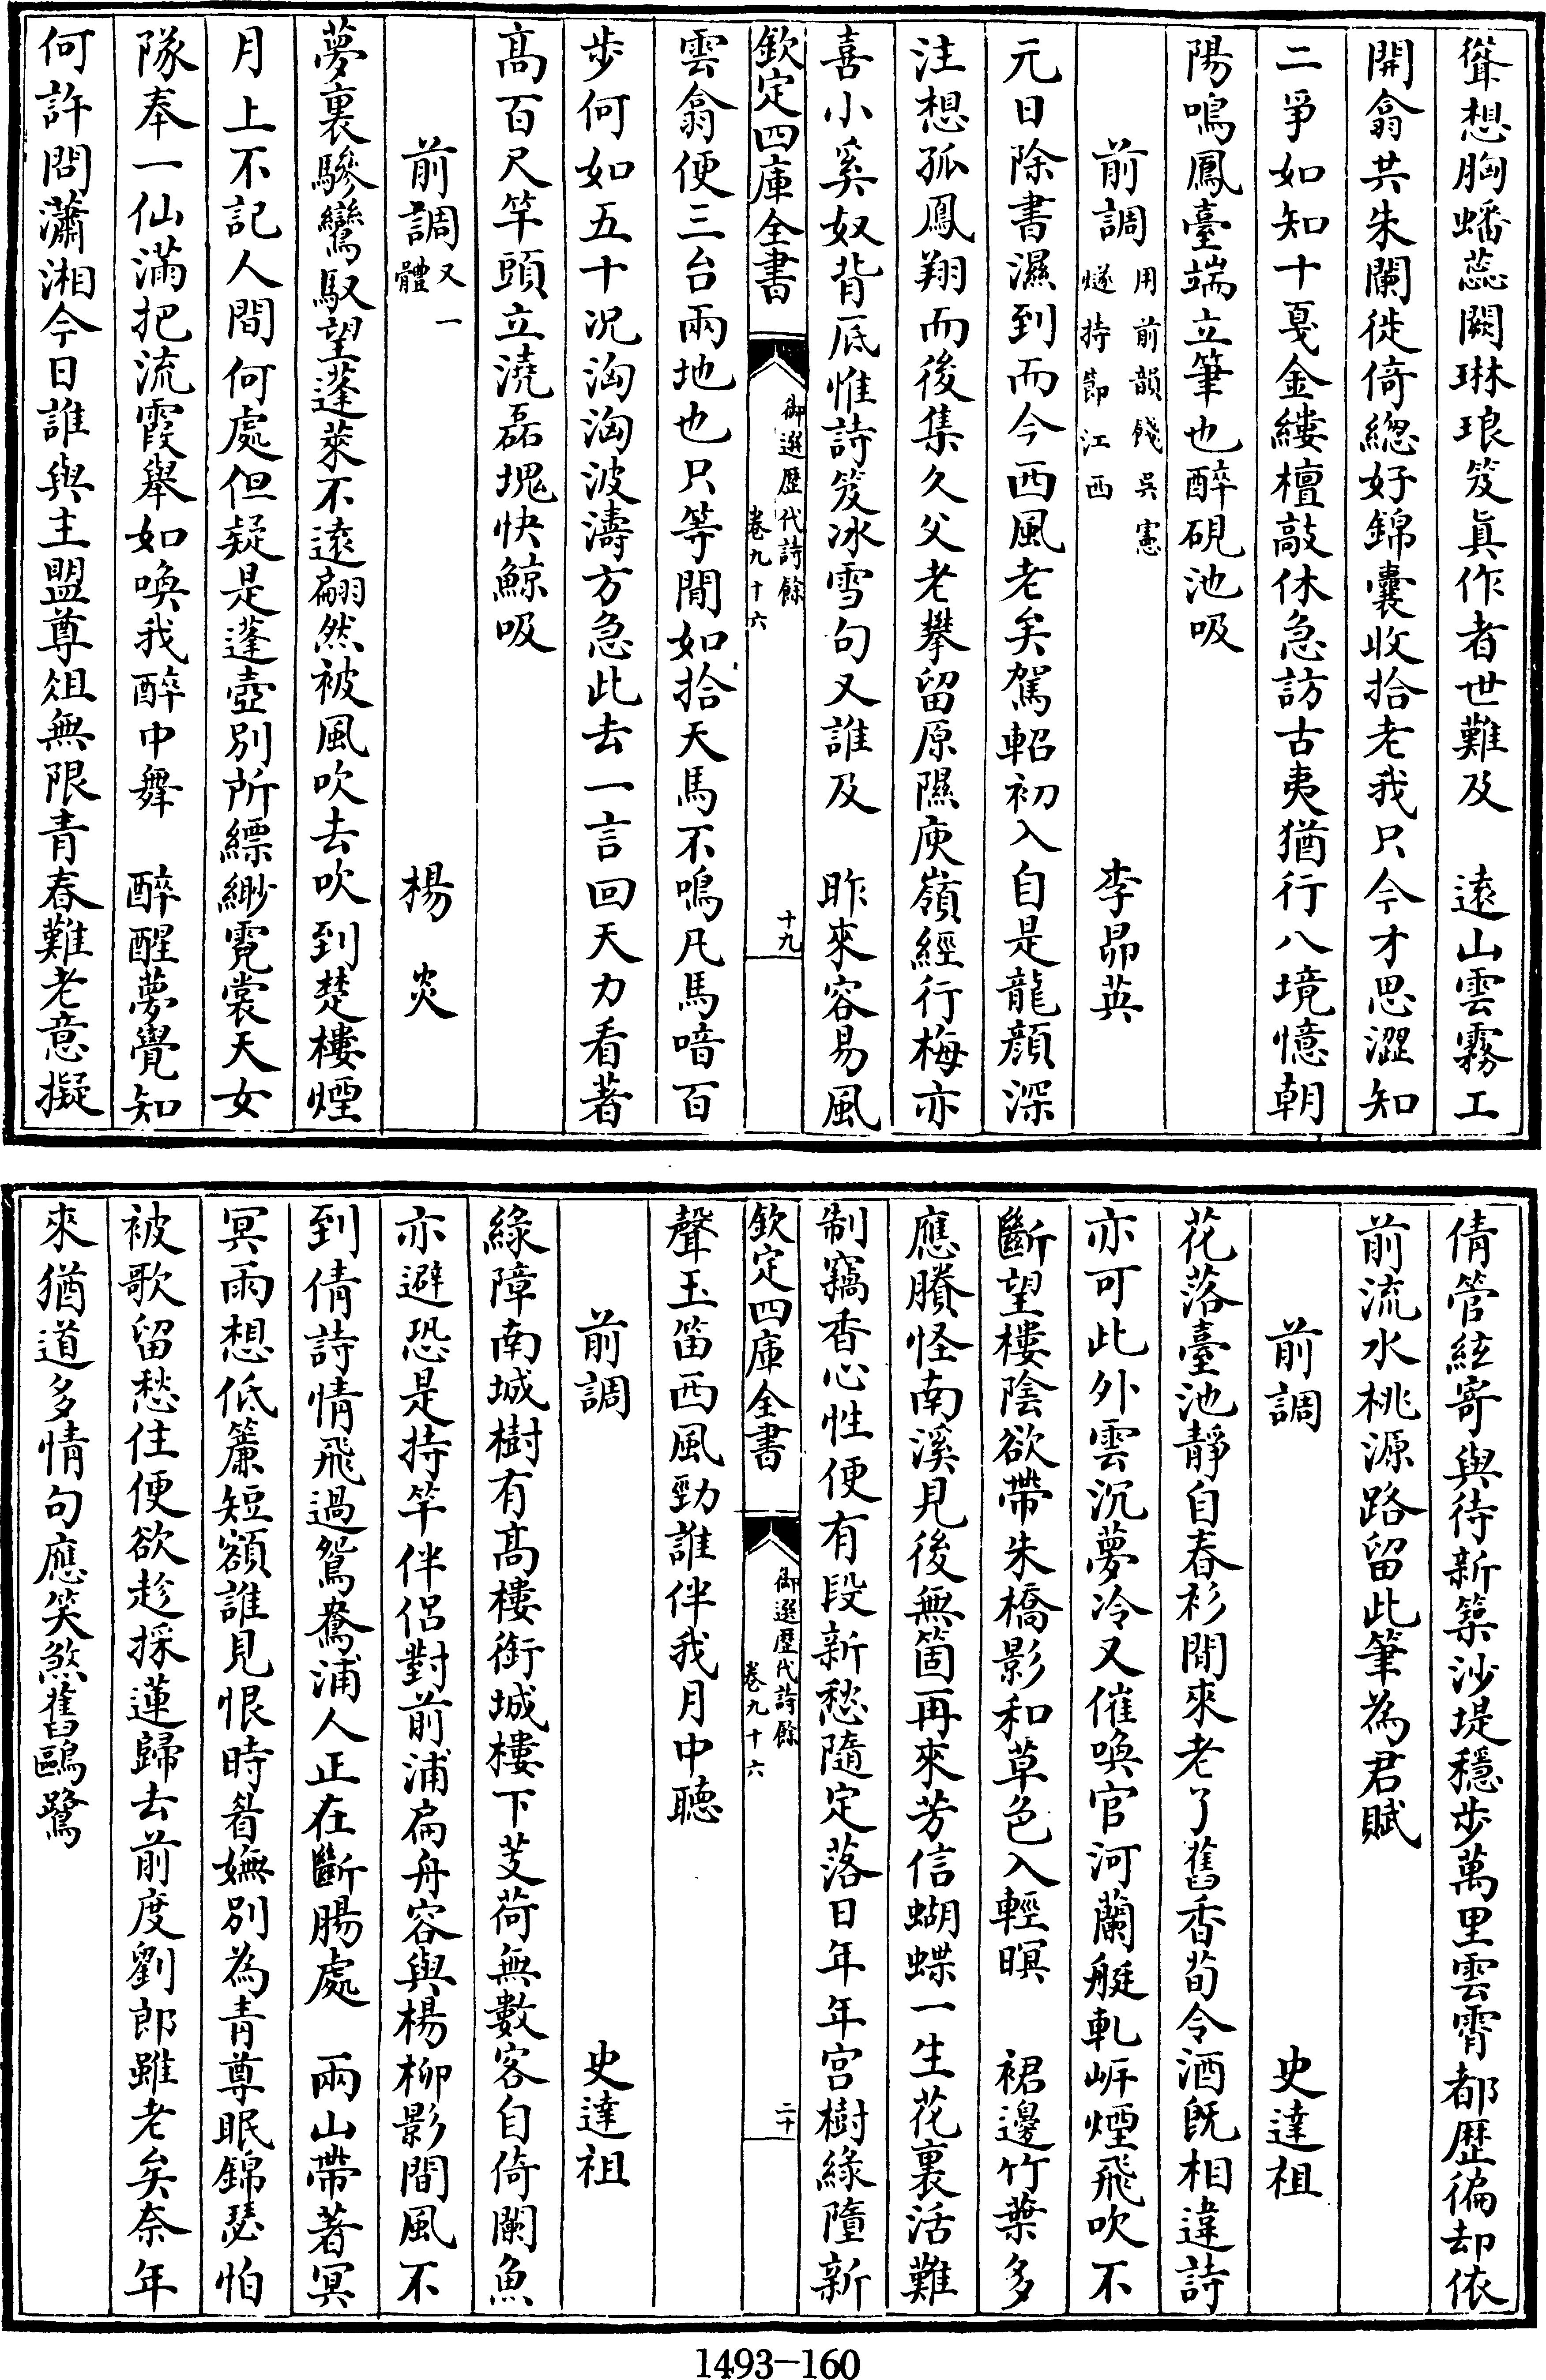 聳想胸蟠蕊闕琳琅笈真作者世難及　遠山雲霧工
開翕共朱闌徙倚總好錦囊收拾老我只今才思澀知
二爭如知十戛金縷檀敲休急訪古夷猶行八境憶朝
陽鳴鳳臺端立筆也醉硯池吸
前調 用前韻餞吳憲燧持節江西　李昴英
元日除書濕到而今西風老矣駕軺初入自是龍顔深
注想孤鳳翔而後集久父老攀留原隰庾嶺經行梅亦
喜小奚奴背底惟詩笈冰雪句又誰及　昨來容易風
欽定四庫全書　御選歷代詩餘 卷九十六　十九
雲翕便三台兩地也只等閒如拾天馬不鳴凡馬喑百
步何如五十况洶洶波濤方急此去一言回天力看著
高百尺竿頭立澆磊塊快鯨吸
前調 又一體　楊炎
夢裏驂鸞馭望蓬萊不遠翩然被風吹去吹到楚樓煙
月上不記人間何處但疑是蓬壺別所縹緲霓裳天女
隊奉一仙滿把流霞舉如喚我醉中舞　醉醒夢覺知
何許問瀟湘今日誰與主盟尊俎無限青春難老意擬
倩管絃寄與待新築沙堤穩步萬里雲霄都歷徧却依
前流水桃源路留此筆為君賦
前調　史達祖
花落臺池靜自春衫閒來老了舊香荀令酒既相違詩
亦可此外雲沉夢冷又催喚官河蘭艇軋岍煙飛吹不
斷望樓陰欲帶朱橋影和草色入輕暝　裙邊竹葉多
應賸怪南溪見後無箇再來芳信蝴蝶一生花裏活難
制竊香心性便有段新愁隨定落日年年宮樹緣墮新
欽定四庫全書　御選歷代詩餘 卷九十六　二十
聲玉笛西風勁誰伴我月中聽
前調　史達祖
綠障南城樹有高樓銜城樓下芰荷無數客自倚闌魚
亦避恐是持竿伴侶對前浦扁舟容與楊柳影間風不
到倩詩情飛過鴛鴦浦人正在斷腸處　兩山帶著冥
冥雨想低簾短額誰見恨時眉嫵別為青尊眠錦瑟怕
被歌留愁住便欲趁採蓮歸去前度劉郎雖老矣奈年
來猶道多情句應笑煞舊鷗鷺
1493-160